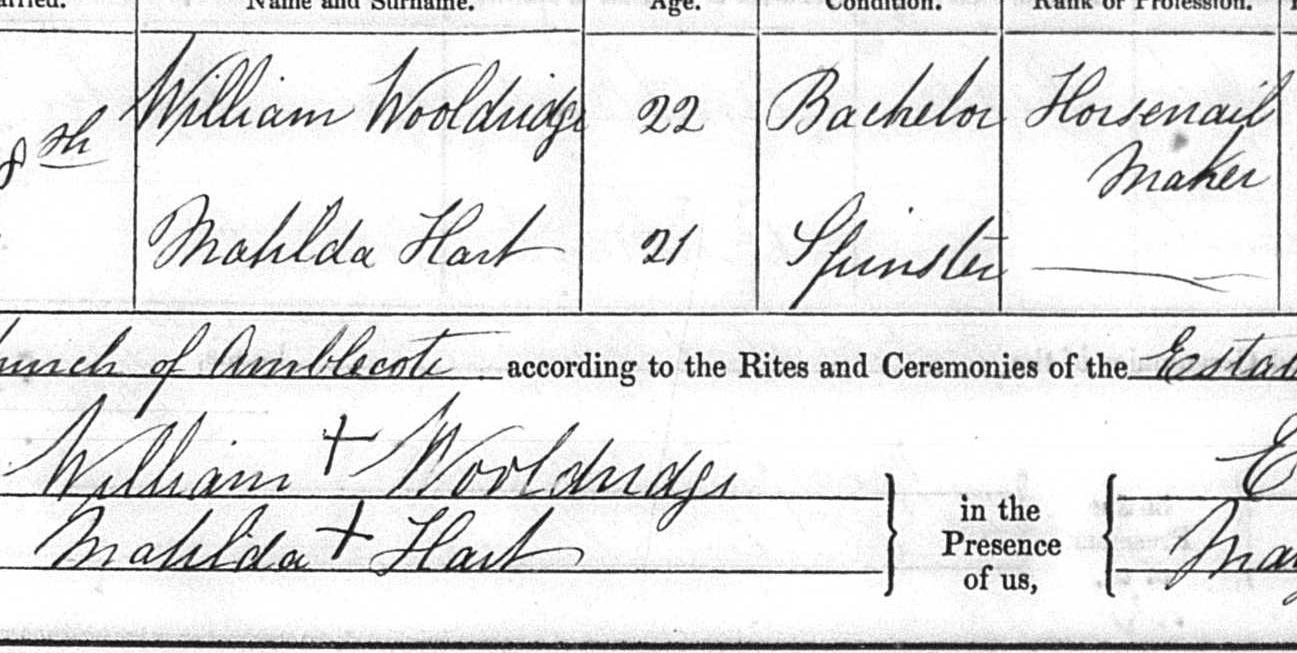 arried. Name and Surname. Age. Condition. Rank or Profession.
William Wooldridge 22 Bachelor Horsenail
8th Maker
Matilda Hart 21 Spinster
hurch of Amblecote according to the Rites and Ceremonies of the Estab
William + Wooldridge
in the
Matilda + Hart Presence
of us,